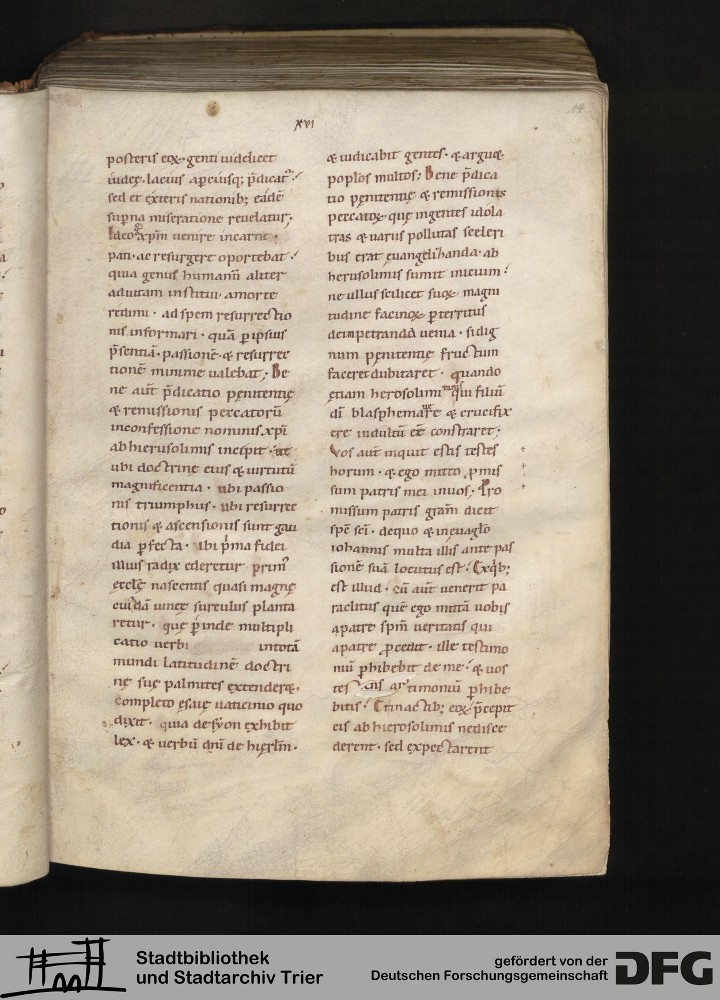 xvi
14
posteris eoꝝ· genti uidelicet
iudeę· lacius apciusq; p̄dicat᷑·
sed et exteris nationib; eadē
sup̄na miseratione reuelatur·
Ideo xp̄m uenire incarne·
pati· ac resurgere oportebat·
quia genus humanū aliter
aduitam institui· amorte
redimi· ad spem resurrectio
nis informari· quā p̱ ipsius
p̄sentiā· passionē· & resurrec
tionē minime ualebat; Be
ne aūt p̄dicatio pęnitentię
& remissionis peccatorū
inconfessione nominis xp̄i
ab hierusolimis incipit· ut
ubi doctrine eius & uirtutū
magnificentia· ubi passio
nis triumphus· ubi resurrec
tionis & ascensionis sunt gau
dia p̱fecta· ubi p̄ma fidei
illius radix ederetur· prim᷑
ęcclę nascentis quasi magnę
cuidā uineę surculus planta
retur· quę p̱inde multipli
catio uerbi intotā
mundi latitudinē doctri
nę suę palmites extenderet·
completo esaię uaticinio quo
dixit· quia de syon exhibit
lex· & uerbū dn̄i de hierl̄m·
& iudicabit gentes· & argu&
poplos multos; Bene p̄dica
tio pęnitentię & remissionis
peccatoꝝ· quę ingentes idola
tras & uariis pollutas sceleri
bus erat euangelizanda· ab
herusolimis sumit inicium·
ne ullus scilicet suoꝝ magni
tudine facinoꝝ p̱territus
deimpetranda uenia· si dig
num pęnitentię fructum
faceret dubitaret· quando
ętiam herosolimitanis qui filiū
dī blasphemare & crucifix
ere indultū eē constaret;
Vos aūt inquit estis testes
horum· & ego mitto p̱mis
sum patris mei inuos; Pro
missum patris gram̄ dicit
spē sc̄i· dequo & ineuaglo
iohannis multa illis ante pas
sionē suā locutus est· Exqb;
est illud· cū aūt uenerit pa
raclitus quē ego mittā uobis
apatre spm̄ ueritatis qui
apatre p̱cedit· ille testimo
niū p̱hibebit de me· & uos
tes timoniū p̱hibe
bitis· Et in actib; eoꝝ· p̄cepit
eis ab hierosolimis nedisce
derent· sed expectarent
Stadtbibliothek
und Stadtarchiv Trier
gefördert von der
Deutschen Forschungsgemeinschaft
DFG